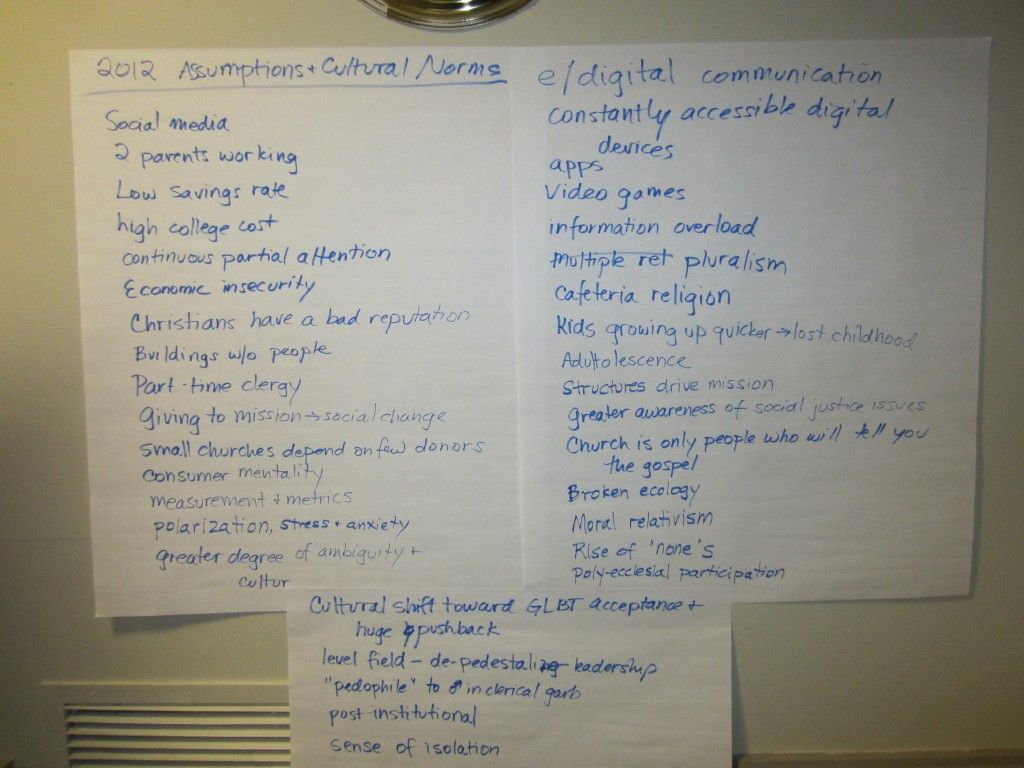 2012 Assumptions + Cultural Norms
Social media
2 parents working
Low savings rate
high college cost
continuous partial attention
Economic insecurity
Christians have a bad reputation
Buildings w/o people
Part-time clergy
Giving to mission → social change
small churches depend on few donors
consumer mentality
measurement + metrics
polarization, stress + anxiety
greater degree of ambiguity +
cultur
e/digital communication
constantly accessible digital
devices
apps
Video games
information overload
Multiple ret pluralism
Cafeteria religion
Kids growing up quicker → lost childhood
Adultolescence
Structures drive mission
greater awareness of social justice issues
Church is only people who will tell you
the gospel
Broken ecology
Moral relativism
Rise of "none"s
poly-ecclesial participation
Cultural shift toward GLBT acceptance +
huge pushback
level field - de-pedestaling leadership
"pedophile" to ♂ in clerical garb
post institutional
sense of isolation